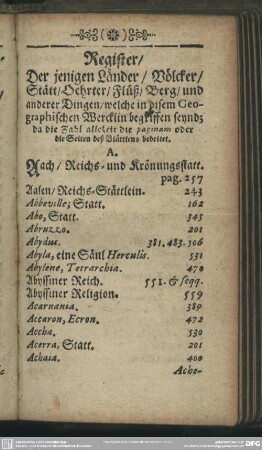 (*)
Register/
Der jenigen Länder / Völcker/
Stätt/Oehrter/ Flüß/ Berg/ und
anderer Dingen/welche in disem Geo-
graphischen Wercklin begriffen seynd;
da die Zahl allezeit die paginam oder
die Seiten deß Blättleins bedeitet.
A.
Aach/ Reichs- und Krönungsstatt.
pag. 257
Aalen/ Reichs-Stättlein. 243
Abbeville; Statt. 162
Abo, Statt. 345
Abruzzo. 201
Abydus. 381. 483. 506
Abyla, eine Säul Herculis. 531
Abylene, Tetrarchia. 470
Abyssiner Reich. 551. & seqq.
Abyssiner Religion. 559
Acarnania. 389
Accaron, Ecron. 472
Accha. 530
Acerra, Statt. 201
Achaia. 400
Ache-